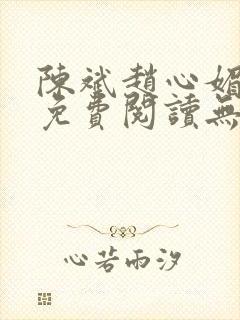 陳斌趙心媚
免費閱讀無
心若雨汐